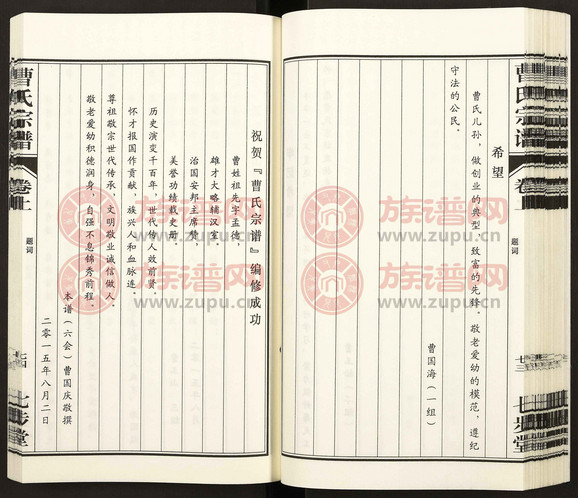 曹氏宗谱
卷十一
题词
七三
七步堂
希望
曹氏儿孙，做创业的典型，致富的先锋。敬老爱幼的模范，遵纪
守法的公民。
曹国海（一组）
祝贺『曹氏宗谱』编修成功
曹姓祖先字孟德，
雄才大略辅汉室。
治国安邦主席赞，
美誉功绩载史册。
历史演变千百年，世代传人效前贤。
怀才报国作贡献，族兴人和血脉连。
尊祖敬宗世代传承，文明敬业诚信做人。
敬老爱幼积德润身，自强不息锦秀前程。
本谱（六会）曹国庆敬撰
二零一五年八月二日
曹氏宗谱
卷十一
题词
七四
七步堂
族谱网
www.zupu.cn
族谱网
www.zupu.cn
族谱网
www.zupu.cn
族谱网
www.zupu.cn